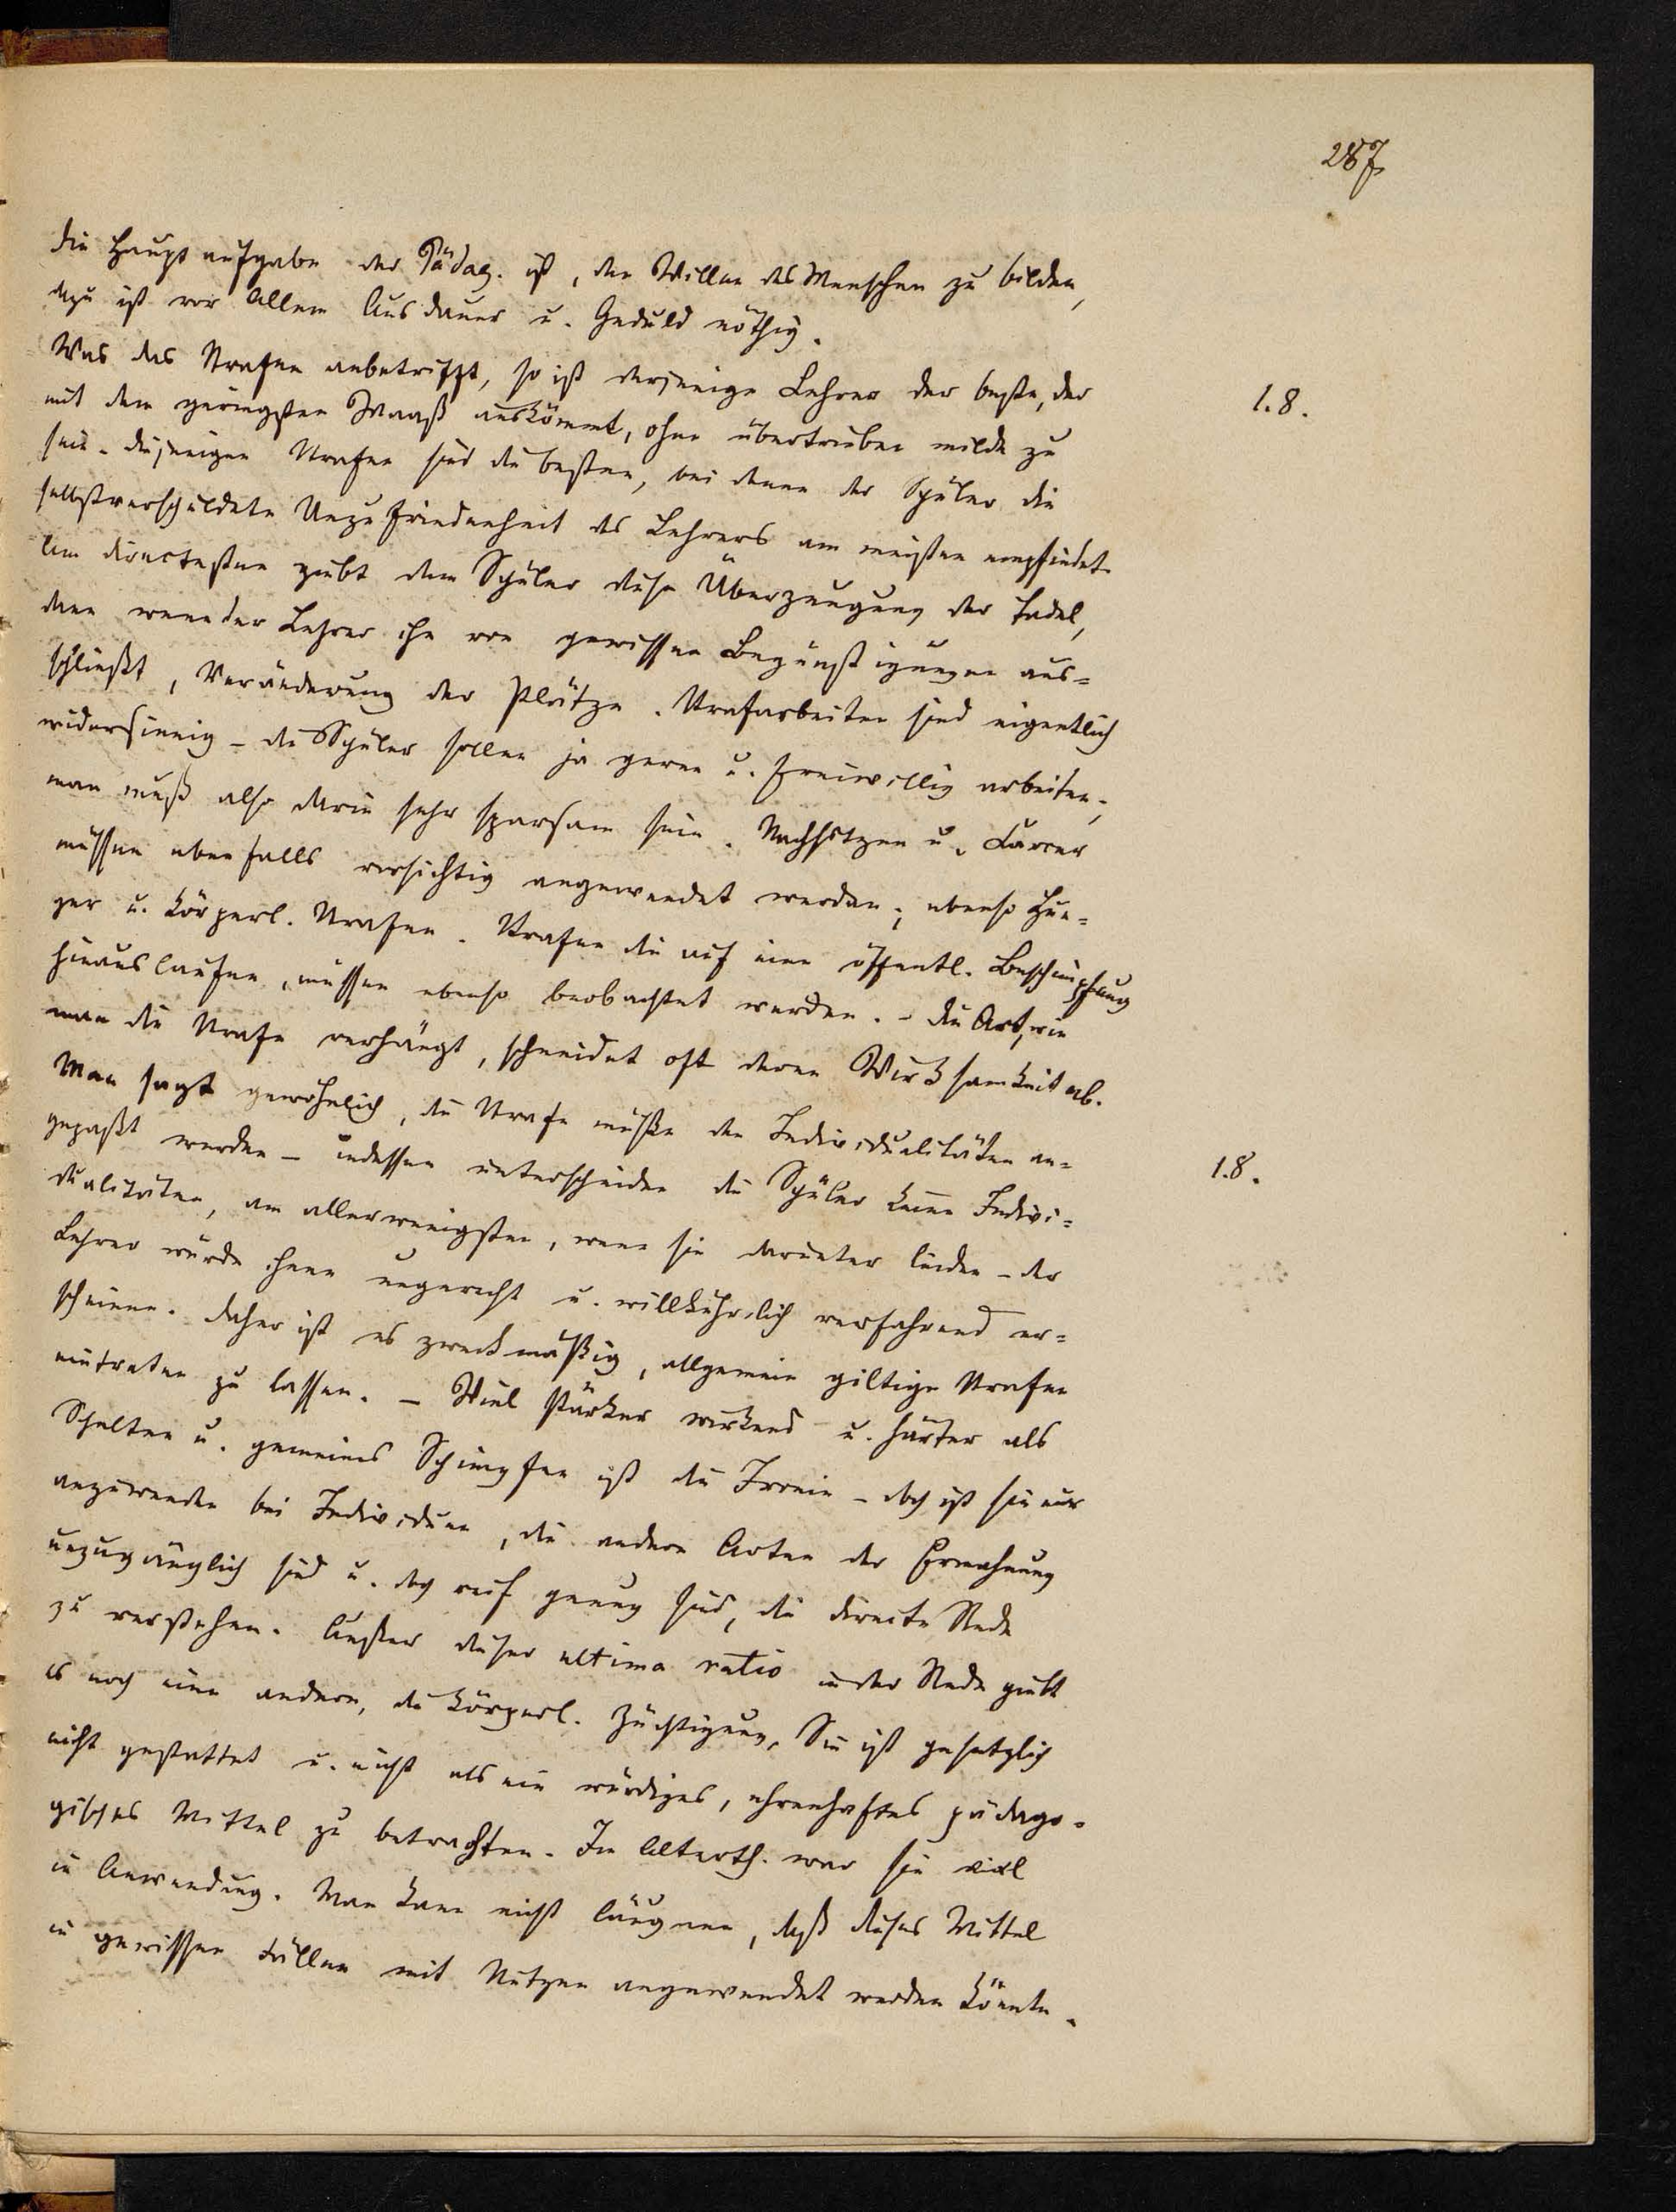 287
Die Hauptaufgabe der Pädag. ist, den Willen des Menschen zu bilden,
dazu ist vor Allem Ausdauer u. Geduld nöthig.
Was das Strafen anbetrifft, so ist derjenige Lehrer der beste, der
1.8.
mit dem geringsten Maaß auskömmt, ohne übertrieben milde zu
sein. Diejenigen Strafen sind die besten, bei denen der Schüler die
selbstverschuldete Unzufriedenheit des Lehrers am meisten empfindet.
Am directesten giebt dem Schüler diese Überzeugung der Tadel,
dann wenn der Lehrer ihn von gewissen Begünstigungen aus=
schließt, Veränderung der Plätze. Strafarbeiten sind eigentlich
widersinnig – die Schüler sollen ja gerne u. freiwillig arbeiten,
man muß also darin sehr sparsam sein. Nachsitzen u. Carcer
müssen ebenfalls vorsichtig angewendet werden; ebenso Hun=
ger u. körperl. Strafen. Strafen die auf eine öffentl. Beschimpfung
hinauslaufen, müssen ebenso beobachtet werden. – Die Art, wie
man die Strafe verhängt, schneidet oft deren Wirksamkeit ab.
Man sagt gewöhnlich, die Strafe müßte den Individualitäten an=
gepaßt werden – indessen unterscheiden die Schüler keine Indivi=
1.8.
dualitäten, am allerwenigsten, wenn sie darunter leiden – der
Lehrer würde ihnen ungerecht u. willkührlich verfahrend er=
scheinen. Daher ist es zweckmäßig, allgemein giltige Strafen
eintreten zu lassen. – Viel stärker wirkend u. härter als
Schelten u. gemeines Schimpfen ist die Ironie – doch ist sie nur
anzuwenden bei Individuen, die andern Arten der Ermahnung
unzugänglich sind u. doch reif genug sind, die directe Rede
zu verstehen. Außer dieser ultima ratio in der Rede giebt
es noch eine andere, die körperl. Züchtigung. Sie ist gesetzlich
nicht gestattet u. nicht als ein würdiges, ehrenhaftes pädago=
gisches Mittel zu betrachten. Im Alterth. war sie viel
in Anwendung. Man kann nicht läugnen, daß dieses Mittel
in gewissen Fällen mit Nutzen angewendet werden könnte.